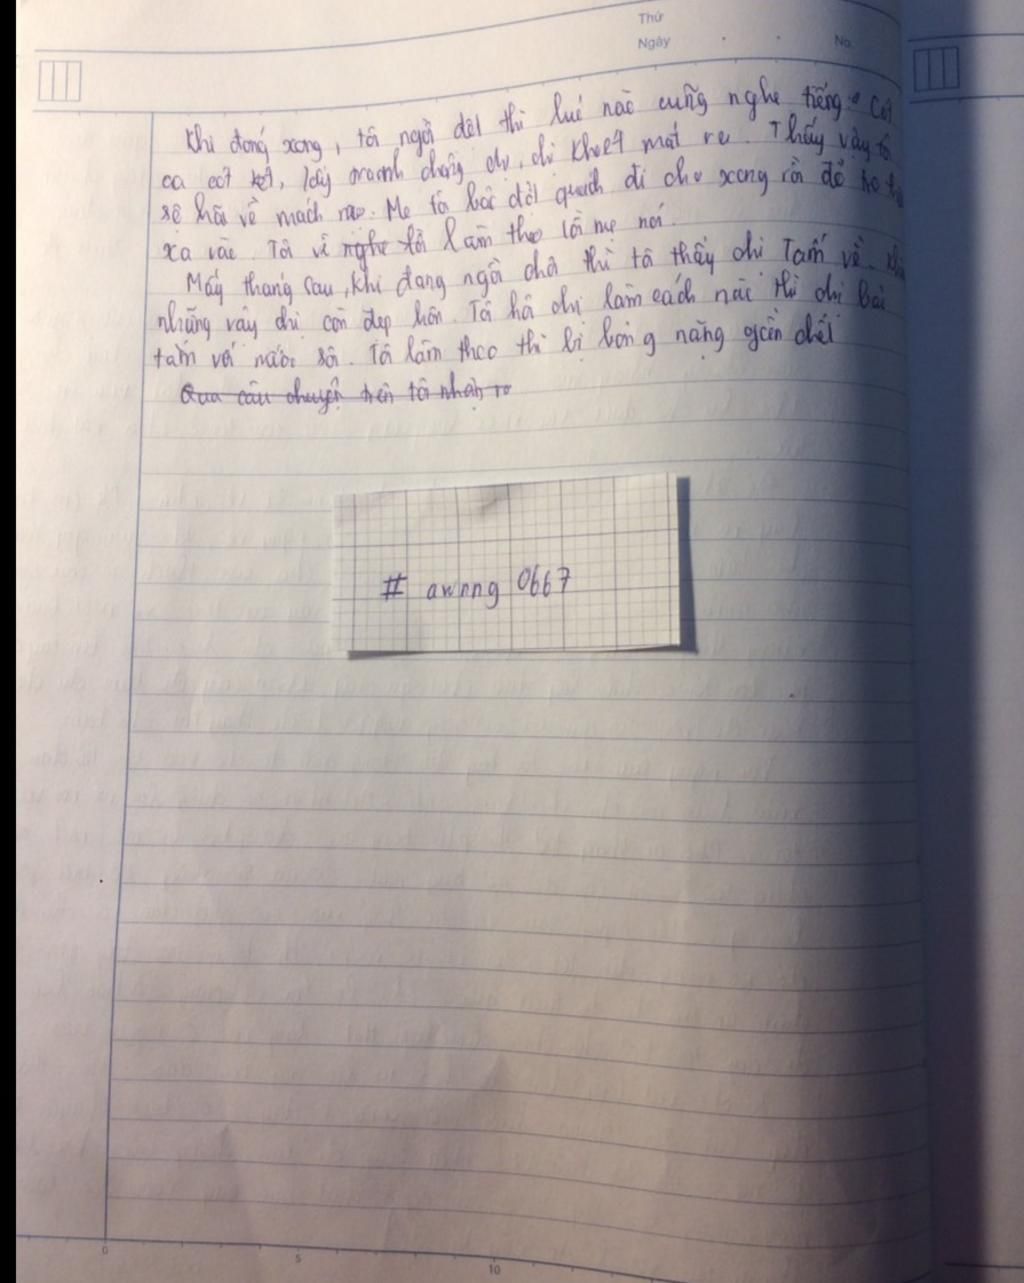 Thứ
Ngày No.
Khi đóng xong, tôi ngồi dệt thì lúc nào cũng nghe tiếng cót
ca cót két, lấy tranh chồng dị, dị khoét mắt ra. Thấy vậy tô
sợ hãi về mách mẹ. Mẹ tô bảo đốt quách đi cho xong rồi đổ tro
xa vào. Tôi về nghe tôi làm theo lời mẹ nói.
Mấy tháng sau, khi đang ngồi chơi thì tô thấy chị Tấm về.
những vậy chị còn đẹp hơn. Tô hỏi chị làm cách nào thì chị bảo
tắm với nước sôi. Tô làm theo thì bị bỏng nặng gần chết
Qua câu chuyện trên tôi nhận ra
# awnng 0667
0 5 10